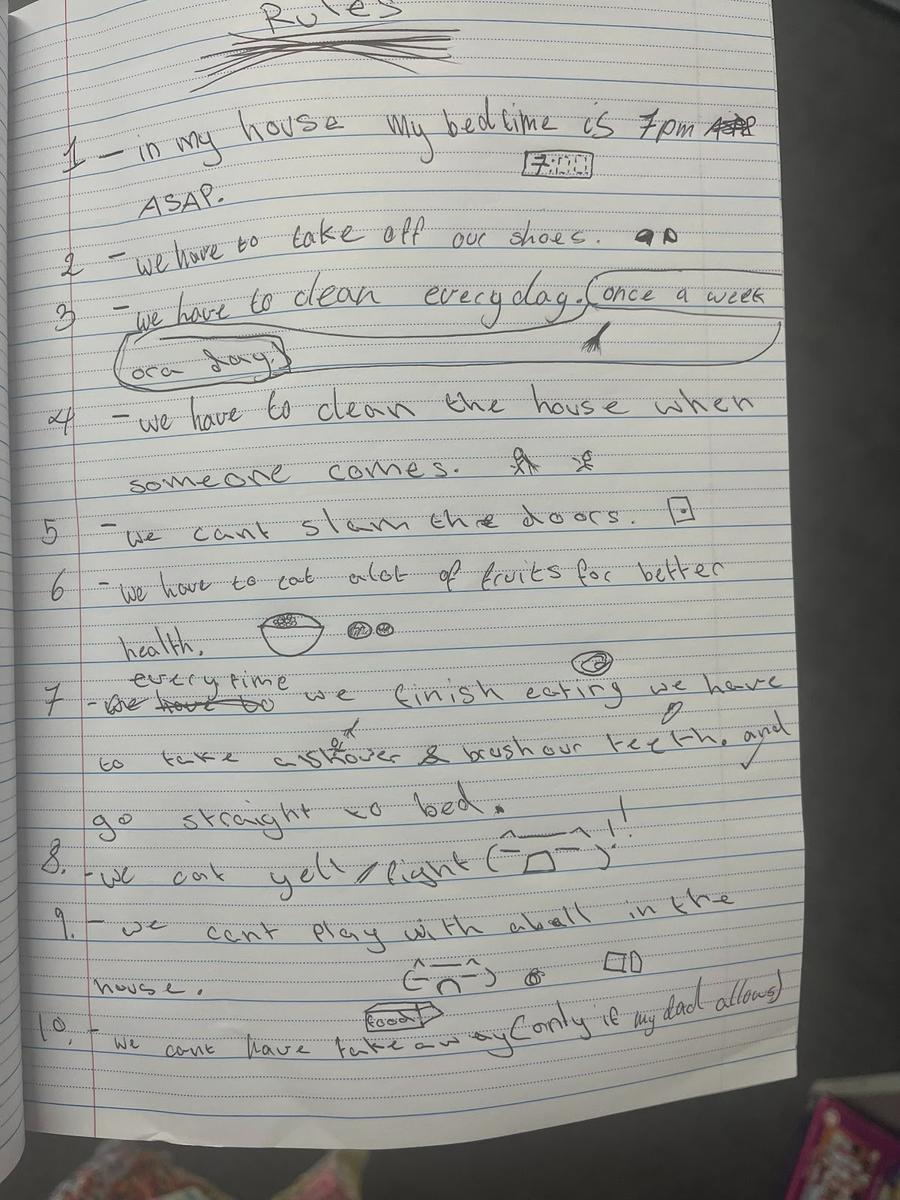 Rules
1 - in my house my bedtime is 7pm
7:00
ASAP.
2 - we have to take off our shoes.
3 - we have to clean everyday. (once a week
ora day.)
4 - we have to clean the house when
someone comes.
5 - we cant slam the doors.
6 - we have to eat alot of fruits for better
health.
every time
7 - we have to we finish eating we have
to take a shower & brush our teeth. and
go straight to bed.
8. - we cat yell / fight !!
9. - we cant play with aball in the
house.
food
10. - we cant have takeaway (only if my dad allows)